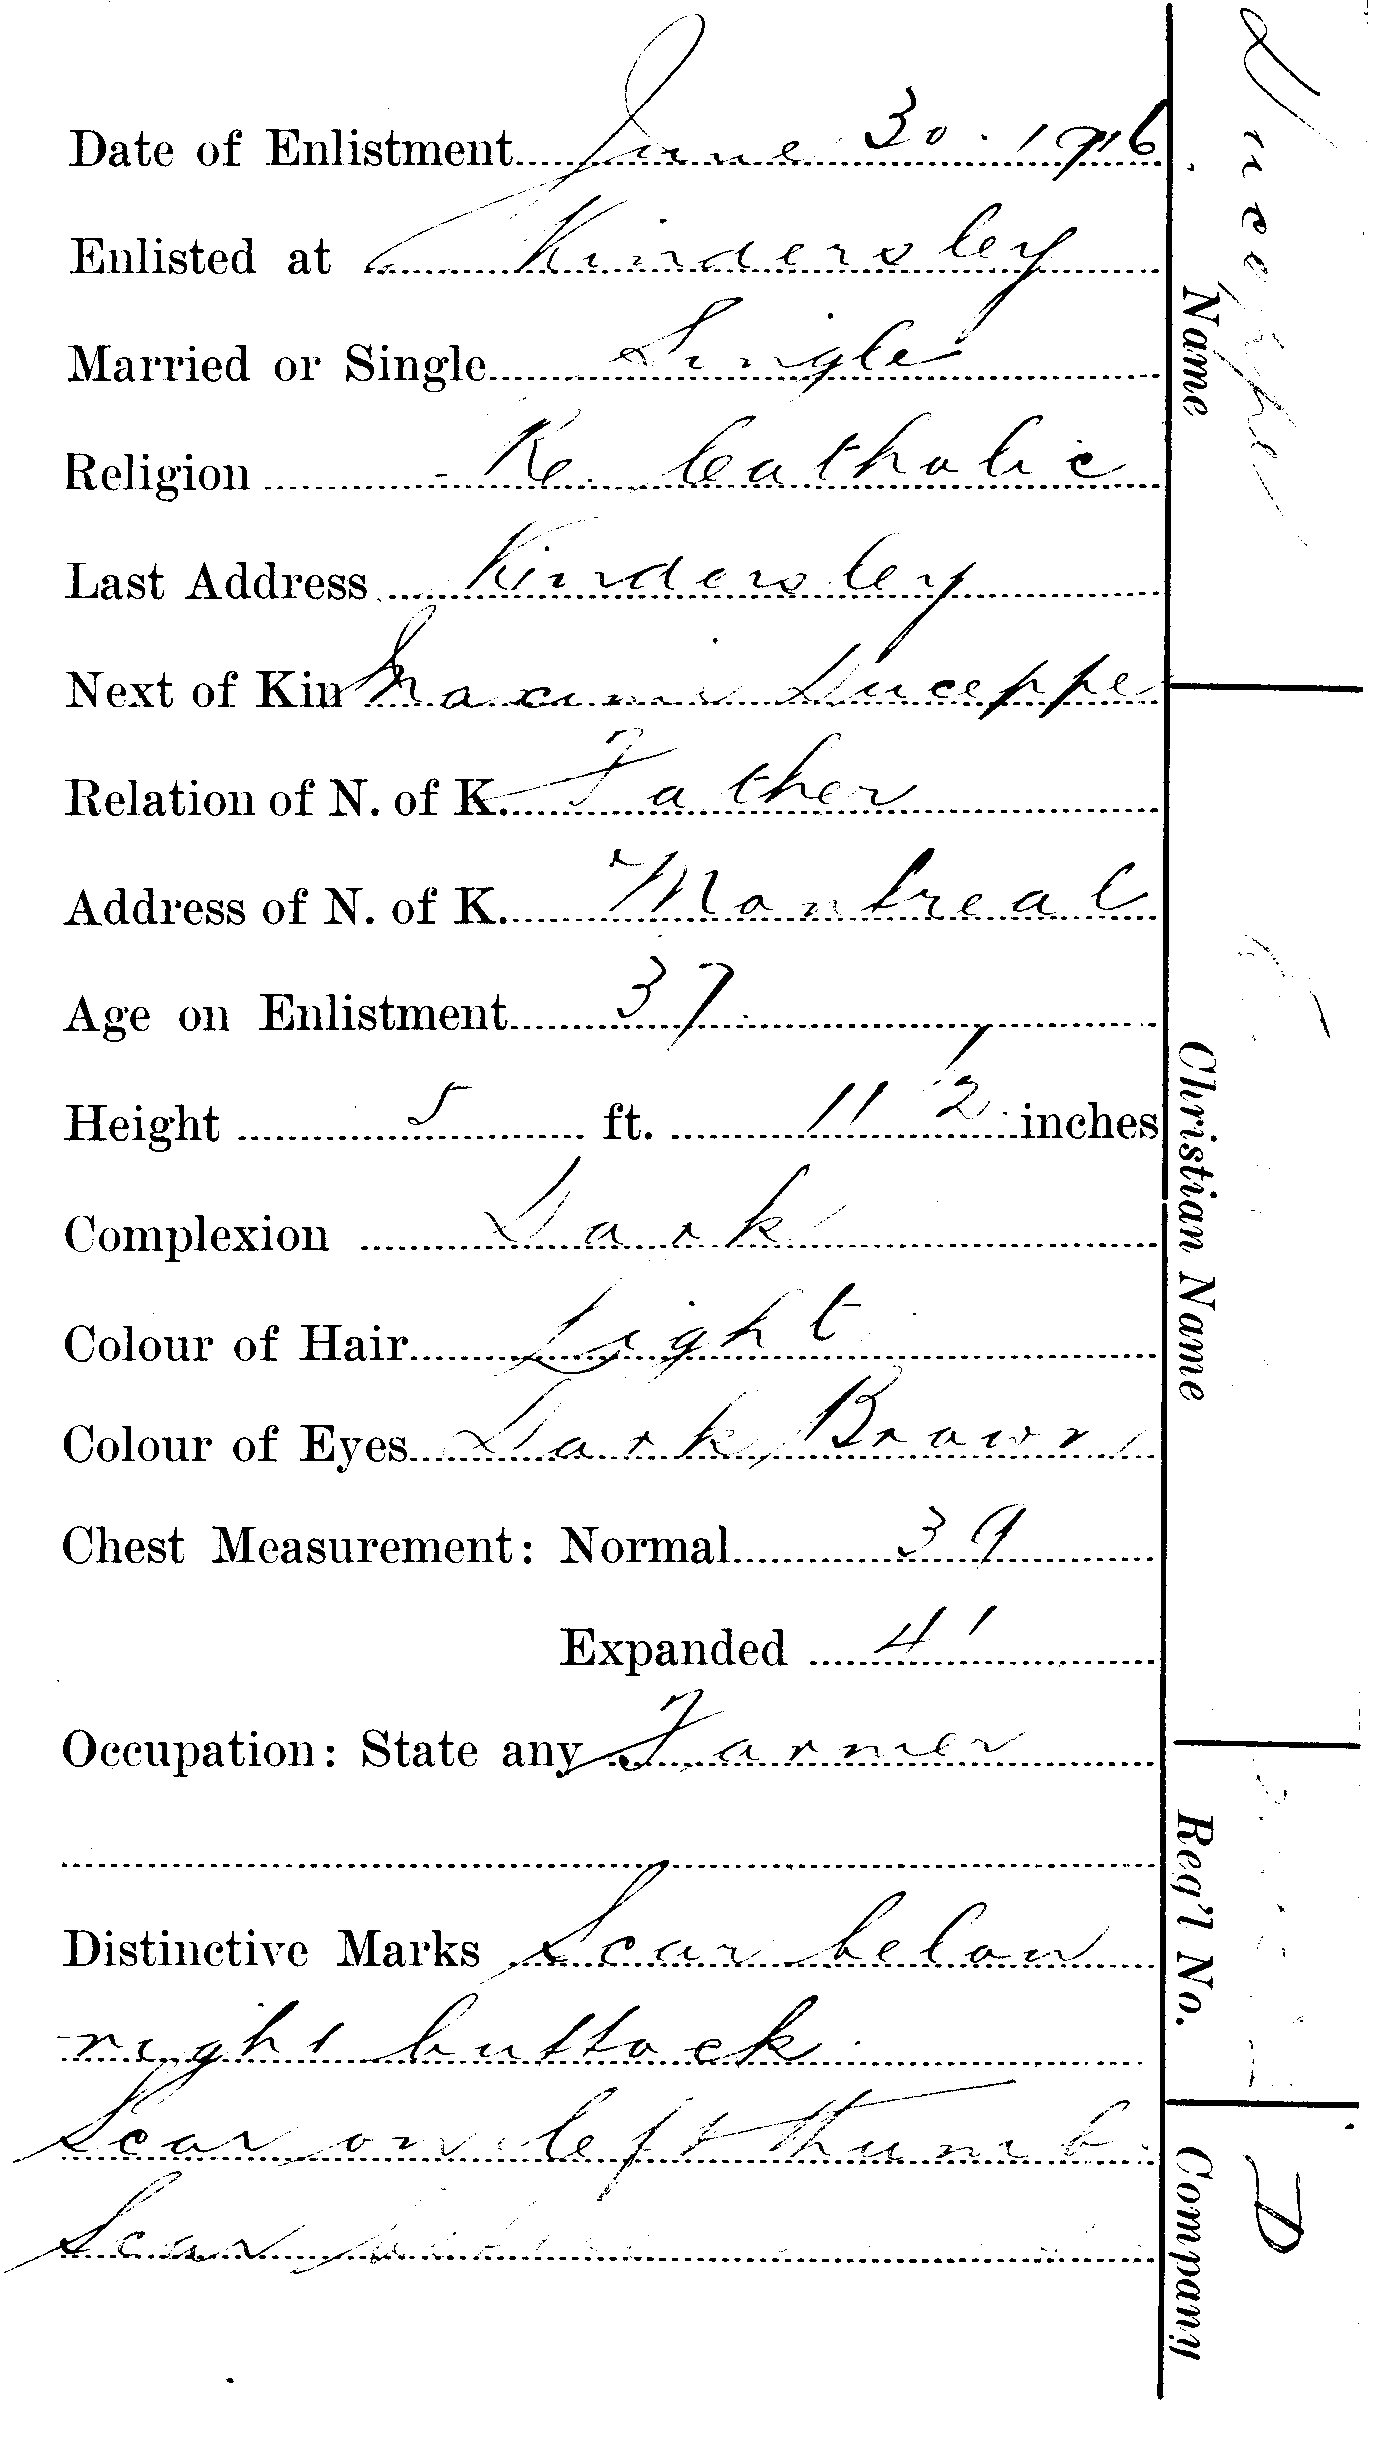 Date of Enlistment June 30. 1916
Enlisted at Kindersley
Married or Single Single
Religion R. Catholic
Last Address Kindersley
Next of Kin Maxime Duceppe
Relation of N. of K. Father
Address of N. of K. Montreal
Age on Enlistment 37
Height 5 ft. 11 1/2 inches
Complexion Dark
Colour of Hair Light
Colour of Eyes Dark Brown
Chest Measurement: Normal 39
Expanded 41
Occupation: State any Farmer
Distinctive Marks Scar below
right buttock
Scar on left thumb
Scar
Name Duceppe
Christian Name
Reg'l No.
Company D